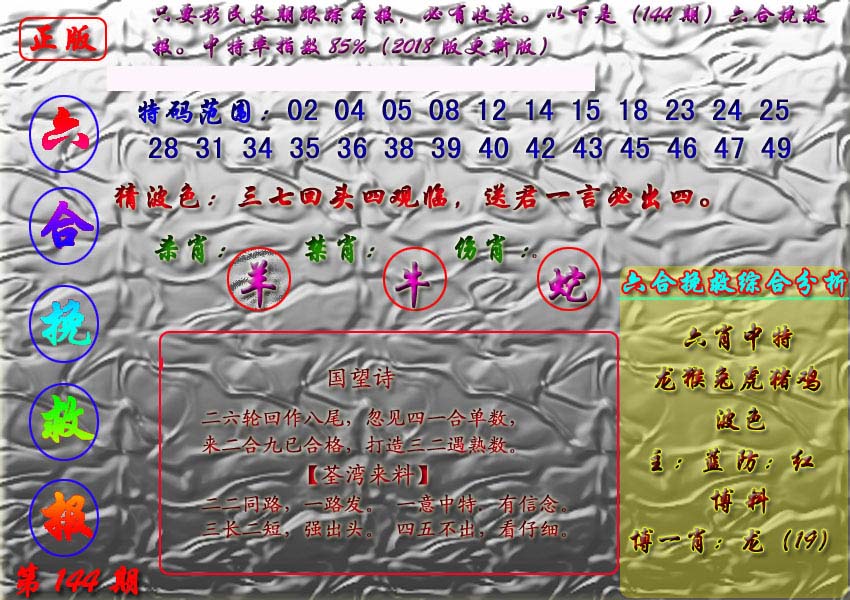 正版
只要彩民长期跟踪本报，必有收获。以下是（144期）六合挽救
报。中特率指数85%（2018版更新版）
六合挽救报
第144期
特码范围：02 04 05 08 12 14 15 18 23 24 25
28 31 34 35 36 38 39 40 42 43 45 46 47 49
猜波色：三七回头四观临，送君一言必出四。
杀肖：羊 禁肖：牛 伤肖：蛇。
国望诗
二六轮回作八尾，忽见四一合单数，
来二合九已合格，打造三二遇熟数。
【荃湾来料】
二二同路，一路发。 一意中特，有信念。
三长二短，强出头。 四五不出，看仔细。
六合挽救综合分析
六肖中特
龙猴兔虎猪鸡
波色
主：蓝防：红
博料
博一肖：龙（19）